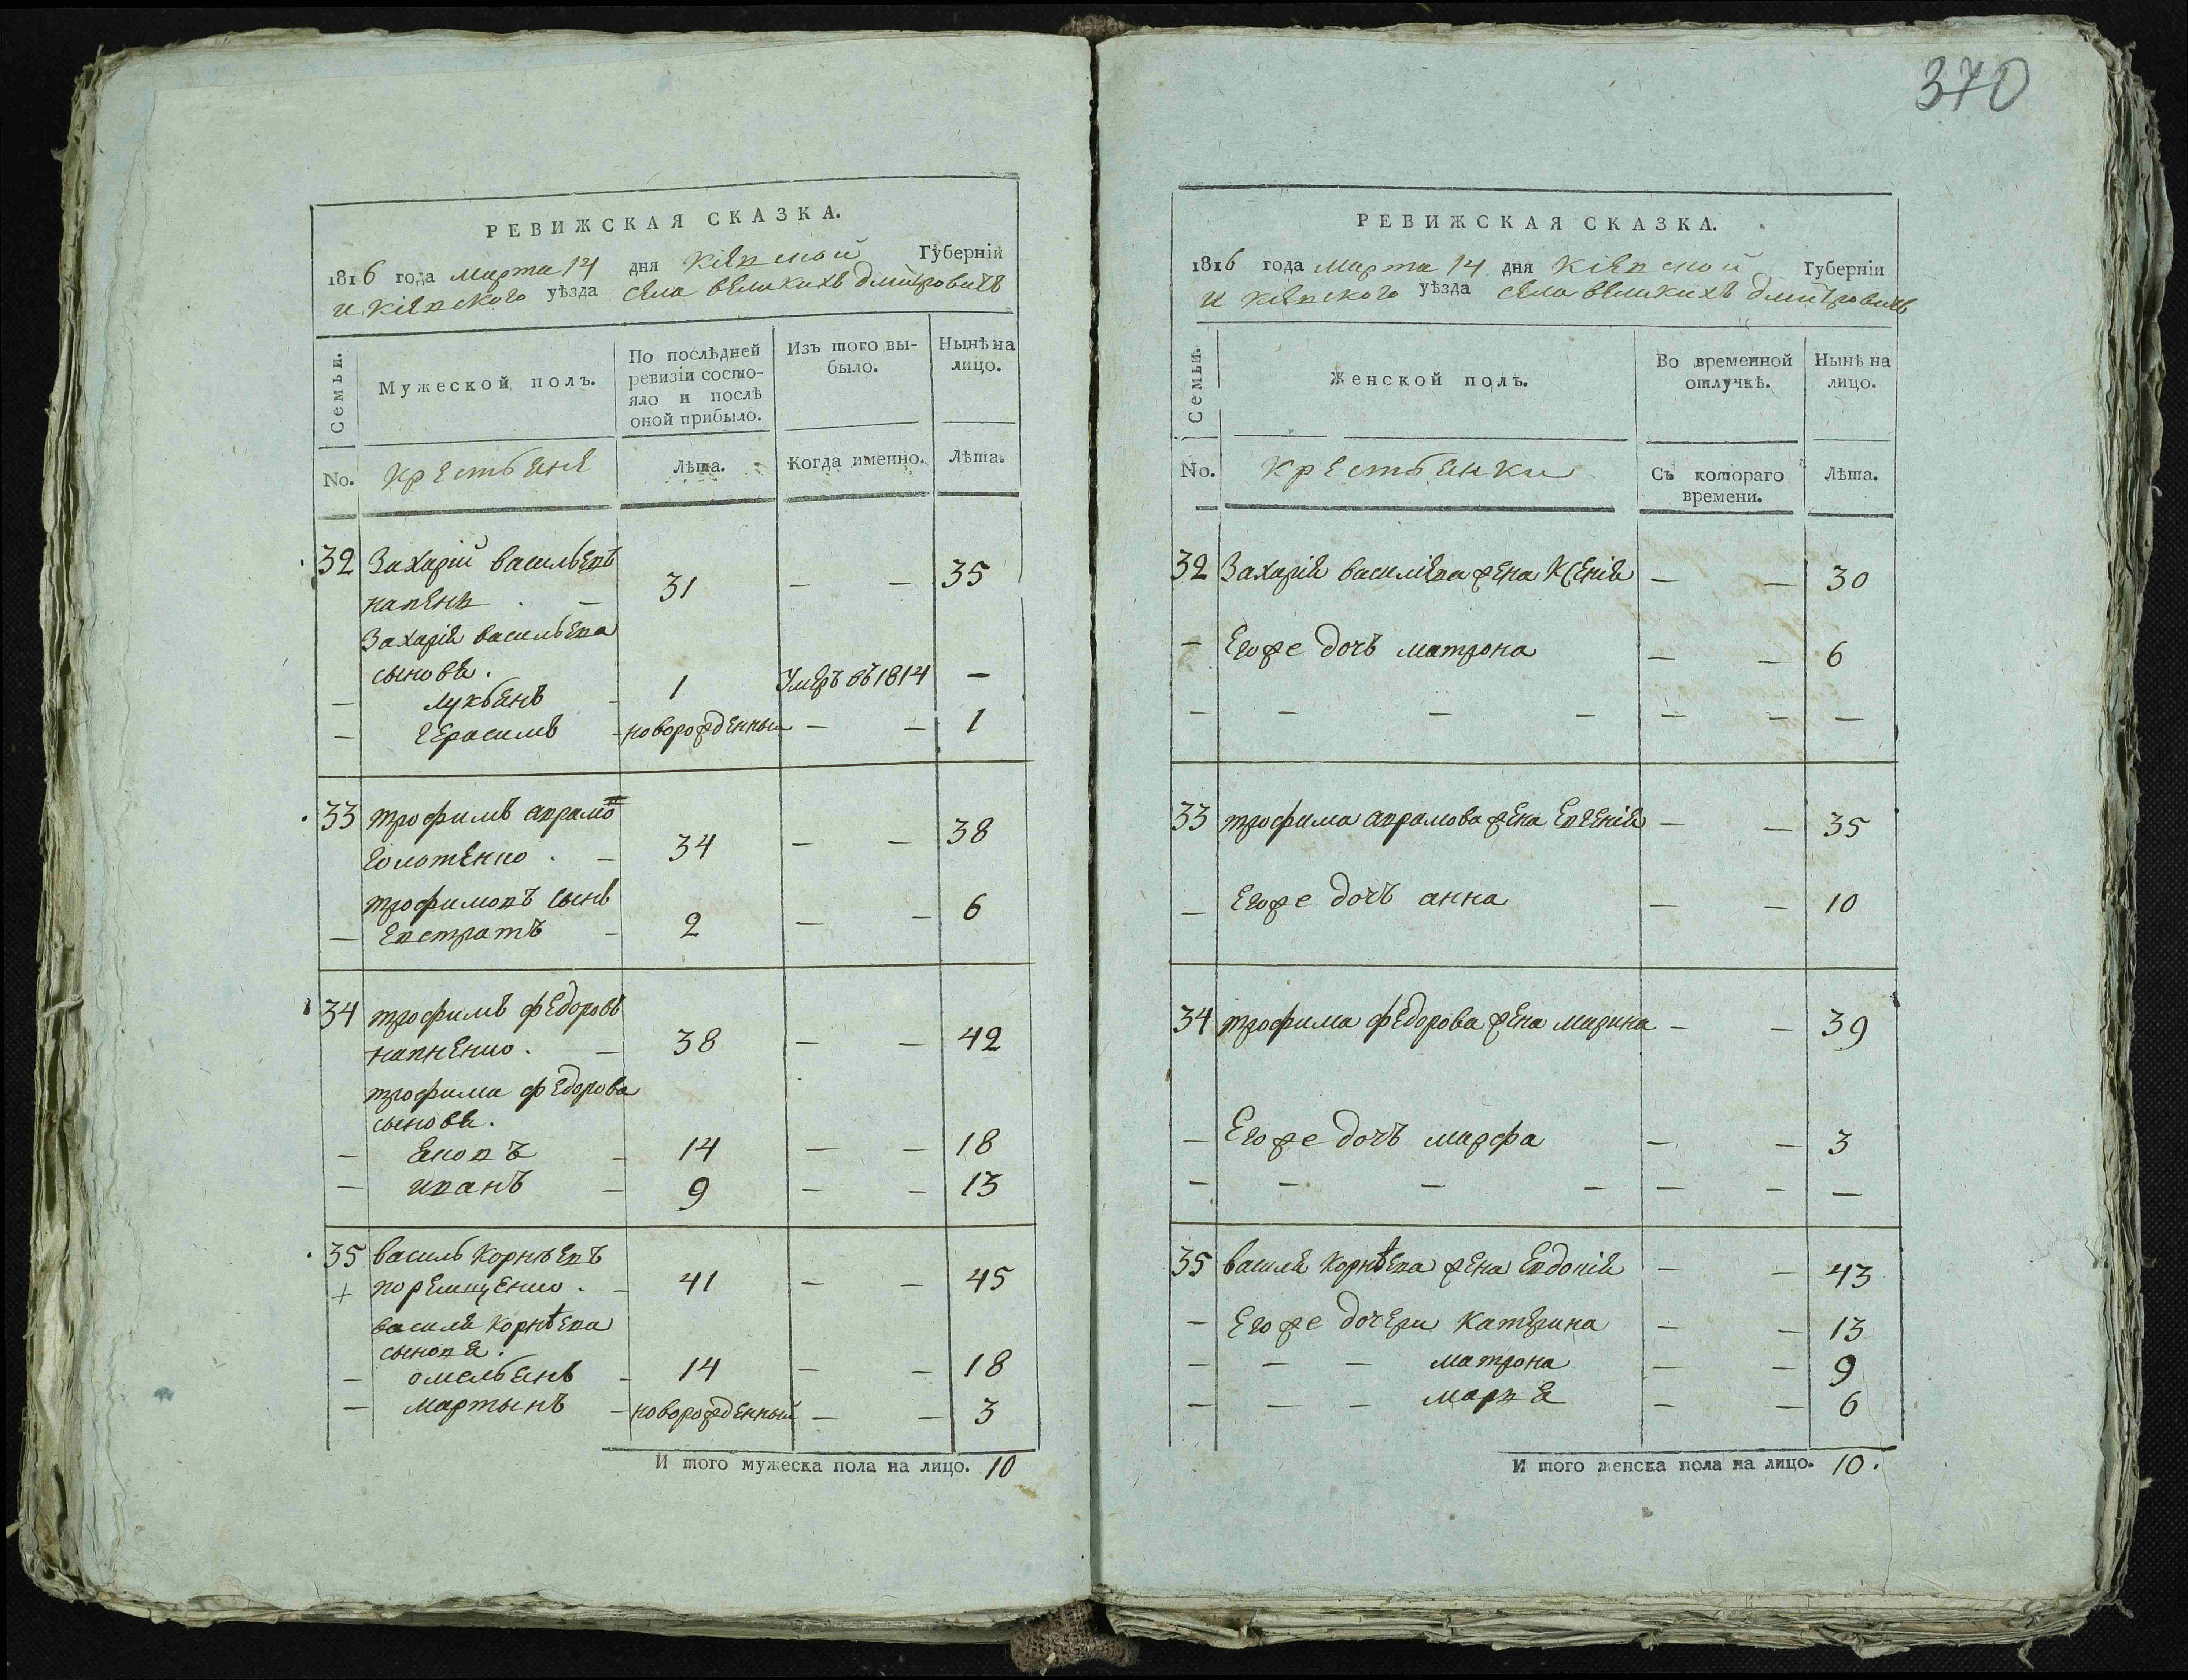 370
РЕВИЖСКАЯ СКАЗКА.
1816 года марта 14 дня Кіевской Губерніи
и Кіевского уѣзда села великихъ дмитровичъ
Семьи.
Мужеской полъ.
По послѣдней ревизіи состо-
яло и послѣ
оной прибыло.
Изъ того вы-
было.
Нынѣ на
лицо.
No. крестьяне
Лѣта.
Когда именно.
Лѣта.
32 Захарій васильевъ
31 — — 35
Захарія васильева
сыновя.
— лукьянъ - 1 Умеръ въ 1814 —
— герасимъ - новорожденный — — 1
33 трофимъ аврамо
34 — — 38
трофимовъ сынъ
— Евстратъ - 2 — — 6
34 трофимъ федоровъ
38 — — 42
трофима федорова
сыновя.
— яковъ - 14 — — 18
— иванъ - 9 — — 13
35 василь корнѣевъ
+ 41 — — 45
василя корнѣева
сыновя.
— омельянъ - 14 — — 18
— мартынъ - новорожденный — — 3
И того мужеска пола на лицо. 10
РЕВИЖСКАЯ СКАЗКА.
1816 года марта 14 дня Кіевской Губерніи
и кіевского уѣзда села великихъ дмитровичъ
Семьи.
Женской полъ.
Во временной
отлучкѣ.
Нынѣ на
лицо.
No. крестьянки
Съ котораго
времени.
Лѣта.
32 Захарія василіева жена Ксенія — — 30
— Егоже дочъ матрона — — 6
— — — — — — —
33 трофима аврамова жена Евгенія — — 35
— Егоже дочъ анна — — 10
34 трофима федорова жена марина — — 39
— Егоже дочъ марфа — — 3
— — — — — — —
35 василя корнѣева жена Евдокія — — 43
— Егоже дочери катерина — — 13
— — — матрона — — 9
— — — марья — — 6
И того женска пола на лицо. 10.